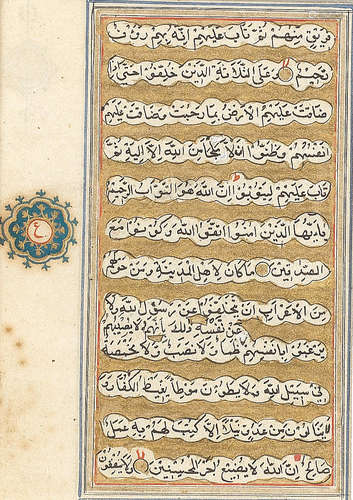 فريق منهم ثم تاب عليهم انه بهم رؤف
رحيم وعلى الثلاثة الذين خلفوا حتى اذا
ضاقت عليهم الارض بما رحبت وضاقت عليهم
انفسهم وظنوا ان لا ملجأ من الله الا اليه ثم
تاب عليهم ليتوبوا ان الله هو التواب الرحيم
ياايها الذين امنوا اتقوا الله وكونوا مع
ع
الصادقين ما كان لاهل المدينة ومن حولهم
من الاعراب ان يتخلفوا عن رسول الله ولا
عن نفسه ذلك بانهم لا يصيبهم
يرغبوا بانفسهم ظمأ ولا نصب ولا مخمصة
في سبيل الله ولا يطؤن موطئا يغيظ الكفار ولا
ينالون من عدو نيلا الا كتب لهم به عمل
صالح ان الله لا يضيع اجر المحسنين ولا ينفقون